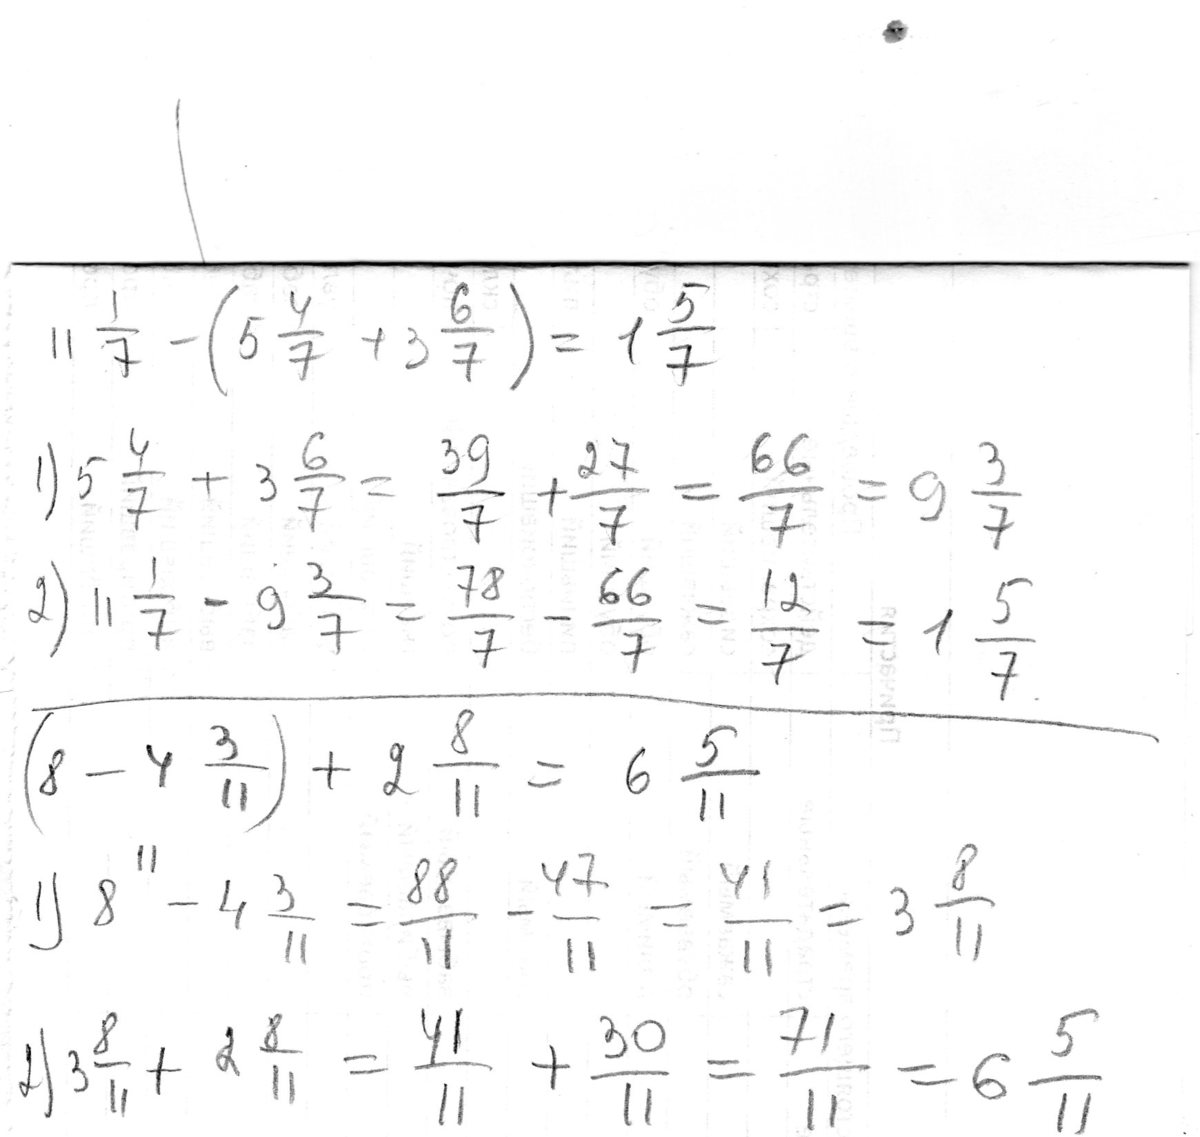 11 1/7 - (5 4/7 + 3 6/7) = 1 5/7
1) 5 4/7 + 3 6/7 = 39/7 + 27/7 = 66/7 = 9 3/7
2) 11 1/7 - 9 3/7 = 78/7 - 66/7 = 12/7 = 1 5/7
(8 - 4 3/11) + 2 8/11 = 6 5/11
1) 8 11 - 4 3/11 = 88/11 - 47/11 = 41/11 = 3 8/11
2) 3 8/11 + 2 8/11 = 41/11 + 30/11 = 71/11 = 6 5/11